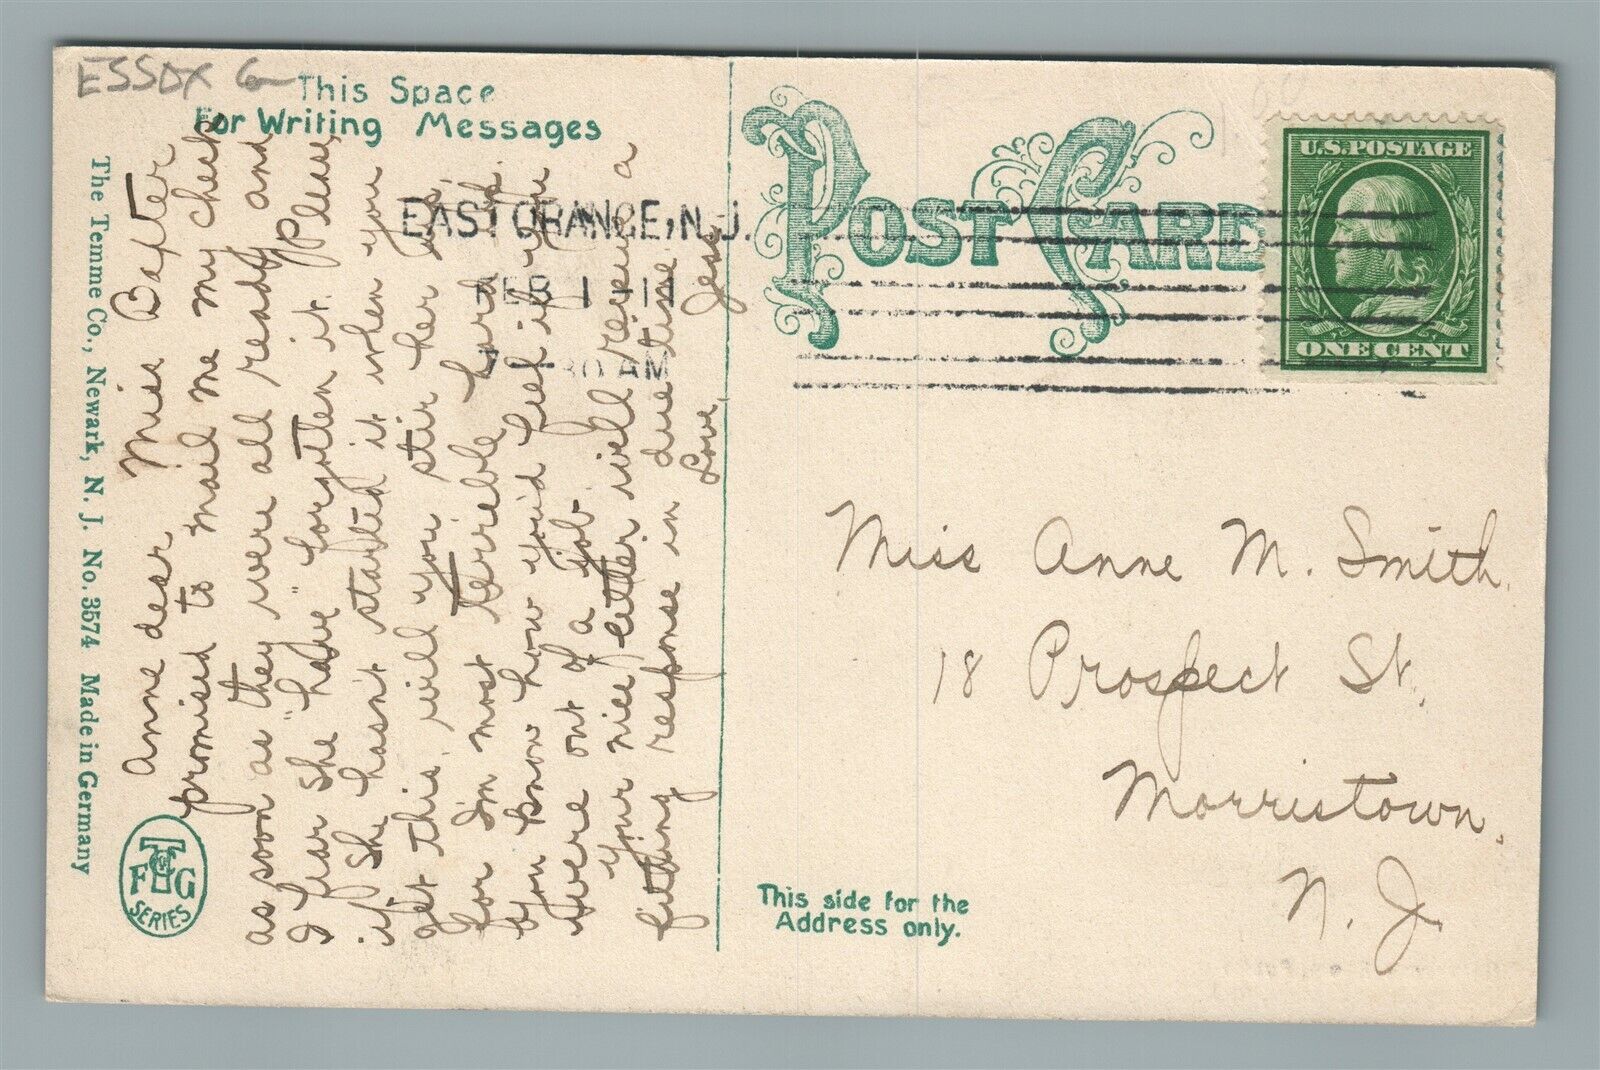 ESSEX Co
This Space
For Writing Messages
Anne dear Miss Baxter
promised to mail me my check
as soon as they were all ready and
I fear she "have" forgotten it. Please
if she hasn't started it when you
get this, will you stir her up.
For I'm most terrible hard up.
You know how you'd feel if you
were out of a job.
Your nice letter will receive a
fitting response in due time
Love, Jess
The Temme Co., Newark, N. J. No. 3574 Made in Germany
T Co
F G
SERIES
EAST ORANGE, N. J.
FEB 1 - 11
7 - 30 AM
POST CARD
U.S. POSTAGE
ONE CENT
Miss Anne M. Smith.
18 Prospect St.,
Morristown.
N. J.
This side for the
Address only.